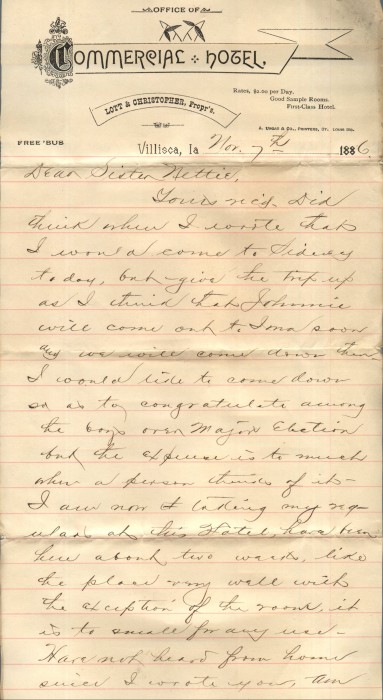 OFFICE OF
COMMERCIAL HOTEL,
RATES, $2.00 per Day.
Good Sample Rooms.
First-Class Hotel.
LOTT & CHRISTOPHER, Propr's.
FREE 'BUS
Villisca, Ia Nov. 7th 1886.
Dear Sister Nettie,
Yours rec'd. Did
think when I wrote that
I would come to Sidney
today, but give the trip up
as I think that Johnnie
will come out to Iowa soon
and we will come down then
I would like to come down
so as to congratulate among
the boys over Majors Election
but the expense is to much
when a person thinks of it -
I am now taking my reg-
ulars at this Hotel, have been
here about two weeks, like
the place very well with
the exception of the room, it
is to small for any use -
Have not heard from home
since I wrote you, am